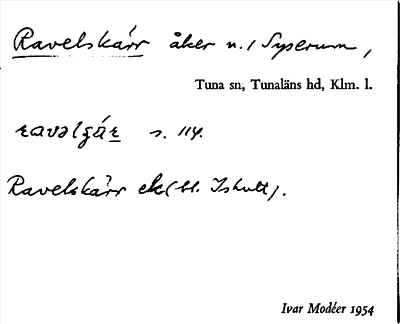 Ravelskärr åker n. / Syserum,
Tuna sn, Tunaläns hd, Klm. l.
s. 114.
Ravelskärr ek (bl. Ishult).
Ivar Modéer 1954